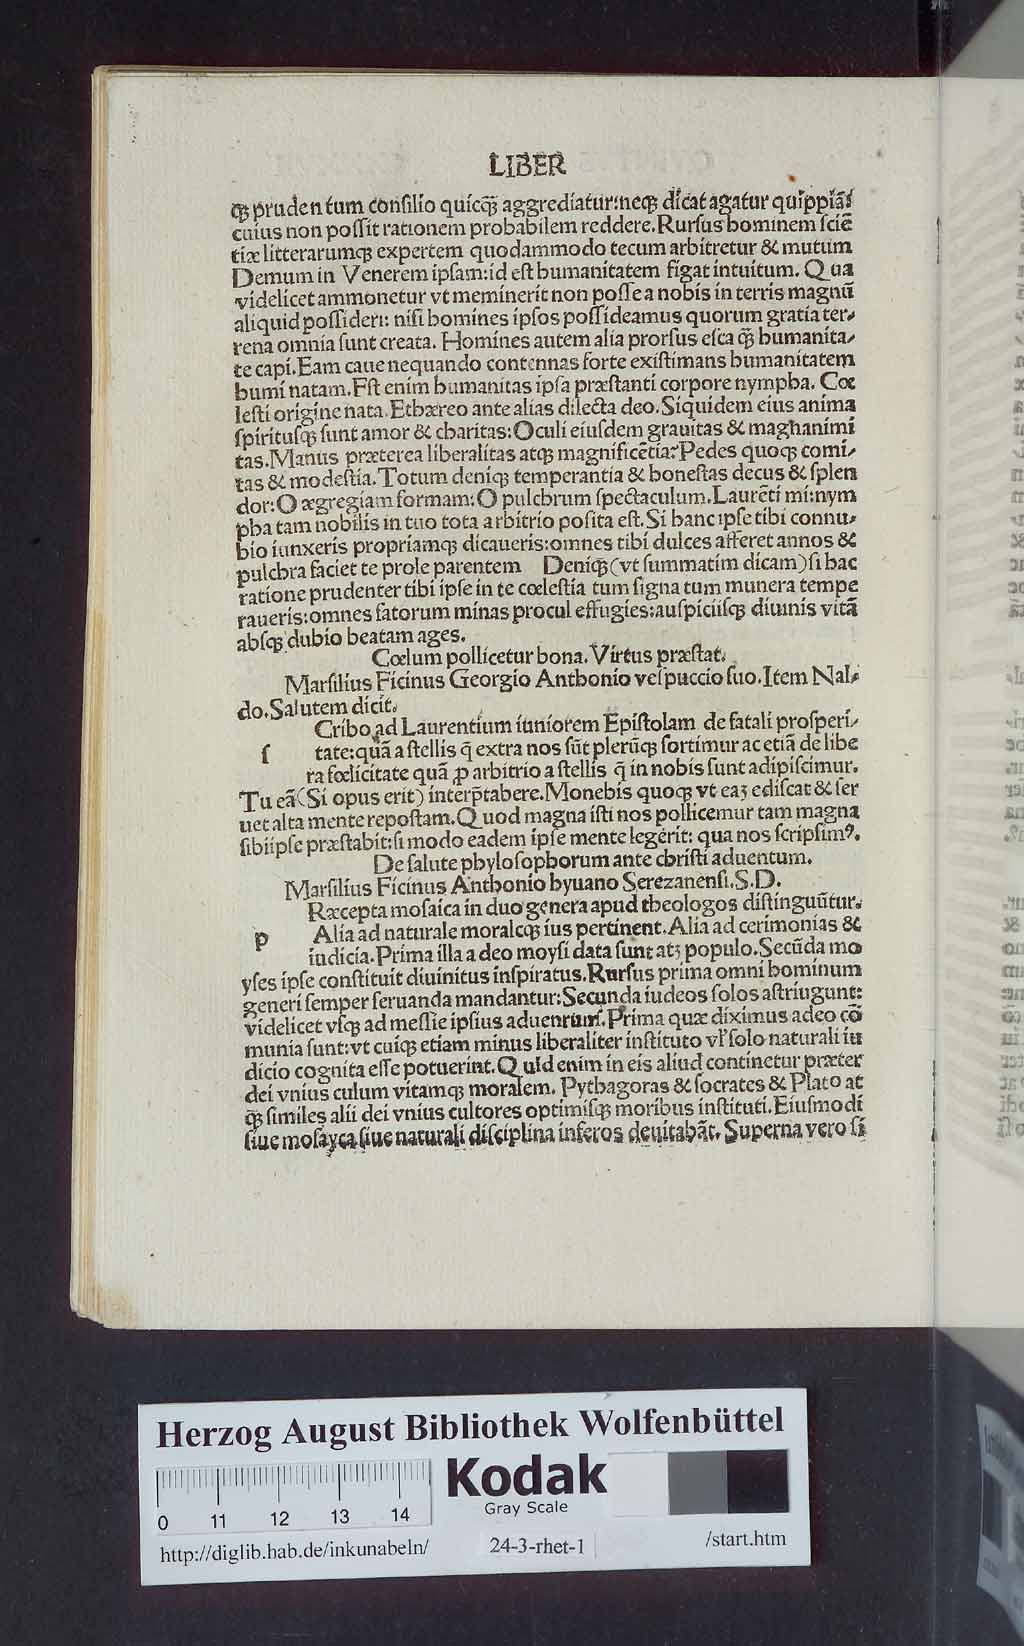 LIBER
qꝫ prudentum conſilio quicq̃ aggrediatur:neqꝫ dicat agatur quippiã:
cuius non poſſit rationem probabilem reddere.Rurſus hominem ſciẽ
tiæ litterarumqꝫ expertem quodammodo tecum arbitretur & mutum
Demum in Venerem ipſam:id eſt humanitatem figat intuitum. Qua
videlicet ammonetur vt meminerit non poſſe a nobis in terris magnũ
aliquid poſſideri: niſi homines ipſos poſſideamus quorum gratia ter⸗
rena omnia ſunt creata. Homines autem alia prorſus eſca q̃ humanita⸗
te capi.Eam caue nequando contennas forte exiſtimans humanitatem
humi natam.Eſt enim humanitas ipſa præſtanti corpore nympha. Cœ
leſti origine nata.Ethæreo ante alias dilecta deo.Siquidem eius anima
ſpirituſqꝫ ſunt amor & charitas:Oculi eiuſdem grauitas & maghanimi
tas.Manus præterea liberalitas atqꝫ magnificẽtia:Pedes quoqꝫ comi⸗
tas & modeſtia.Totum deniqꝫ temperantia & honeſtas decus & ſplen
dor:O ægregiam formam:O pulchrum ſpectaculum.Laurẽti mi:nym
pha tam nobilis in tuo tota arbitrio poſita eſt.Si hanc ipſe tibi connu⸗
bio iunxeris propriamqꝫ dicaueris:omnes tibi dulces afferet annos &
pulchra faciet te prole parentem Deniqꝫ(vt ſummatim dicam)ſi hac
ratione prudenter tibi ipſe in te cœleſtia tum ſigna tum munera tempe
raueris:omnes fatorum minas procul effugies:auſpiciiſqꝫ diuinis vitã
abſqꝫ dubio beatam ages.
Cœlum pollicetur bona.Virtus præſtat.
Marſilius Ficinus Georgio Anthonio veſpuccio ſuo.Item Nal⸗
do.Salutem dicit.
Cribo ad Laurentium iuniorem Epiſtolam de fatali proſperi⸗
ſ tate:quã a ſtellis q̃ extra nos ſũt plerũqꝫ ſortimur ac etiã de libe
ra fœlicitate quã ꝓ arbitrio a ſtellis q̃ in nobis ſunt adipiſcimur.
Tu eã(Si opus erit) interp̃tabere.Monebis quoqꝫ vt eaꝫ ediſcat & ſer
uet alta mente repoſtam.Quod magna iſti nos pollicemur tam magna
ſibiipſe præſtabit:ſi modo eadem ipſe mente legerit: qua nos ſcripſimꝰ.
De ſalute phyloſophorum ante chriſti aduentum.
Marſilius Ficinus Anthonio hyuano Serezanenſi.S.D.
Ræcepta moſaica in duo genera apud theologos diſtinguũtur.
p Alia ad naturale moralcqꝫ ius pertinent.Alia ad cerimonias &
iudicia.Prima illa a deo moyſi data ſunt atꝫ populo.Secũda mo
yſes ipſe conſtituit diuinitus inſpiratus.Rurſus prima omni hominum
generi ſemper ſeruanda mandantur:Secunda iudeos ſolos aſtriugunt:
videlicet vſqꝫ ad meſſie ipſius aduenrum.Prima quæ diximus adeo cõ
munia ſunt:vt cuiqꝫ etiam minus liberaliter inſtituto vl̃ ſolo naturali iu
dicio cognita eſſe potuerint.Quid enim in eis aliud continetur præter
dei vnius culum vitamqꝫ moralem. Pythagoras & ſocrates & Plato at
qꝫ ſimiles alii dei vnius cultores optimiſqꝫ moribus inſtituti.Eiuſmodi
ſiue moſayca ſiue naturali diſciplina inferos deuitabãt. Superna vero ſi
Herzog August Bibliothek Wolfenbüttel
Kodak
Gray Scale
0 11 12 13 14
http://diglib.hab.de/inkunabeln/ 24-3-rhet-1 /start.htm